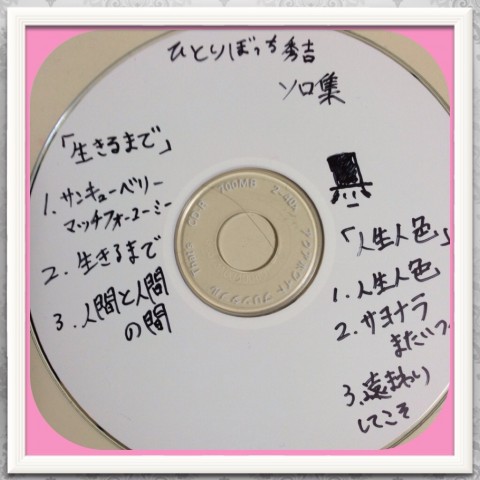 ひとりぼっち秀吉
ソロ集
「生きるまで」
1. サンキューベリー
マッチフォーユーミー
2. 生きるまで
3. 人間と人間
の間
「人生人色」
1. 人生人色
2. サヨナラ
またいつ
3. 遠まわり
してこそ
CD-R 700MB